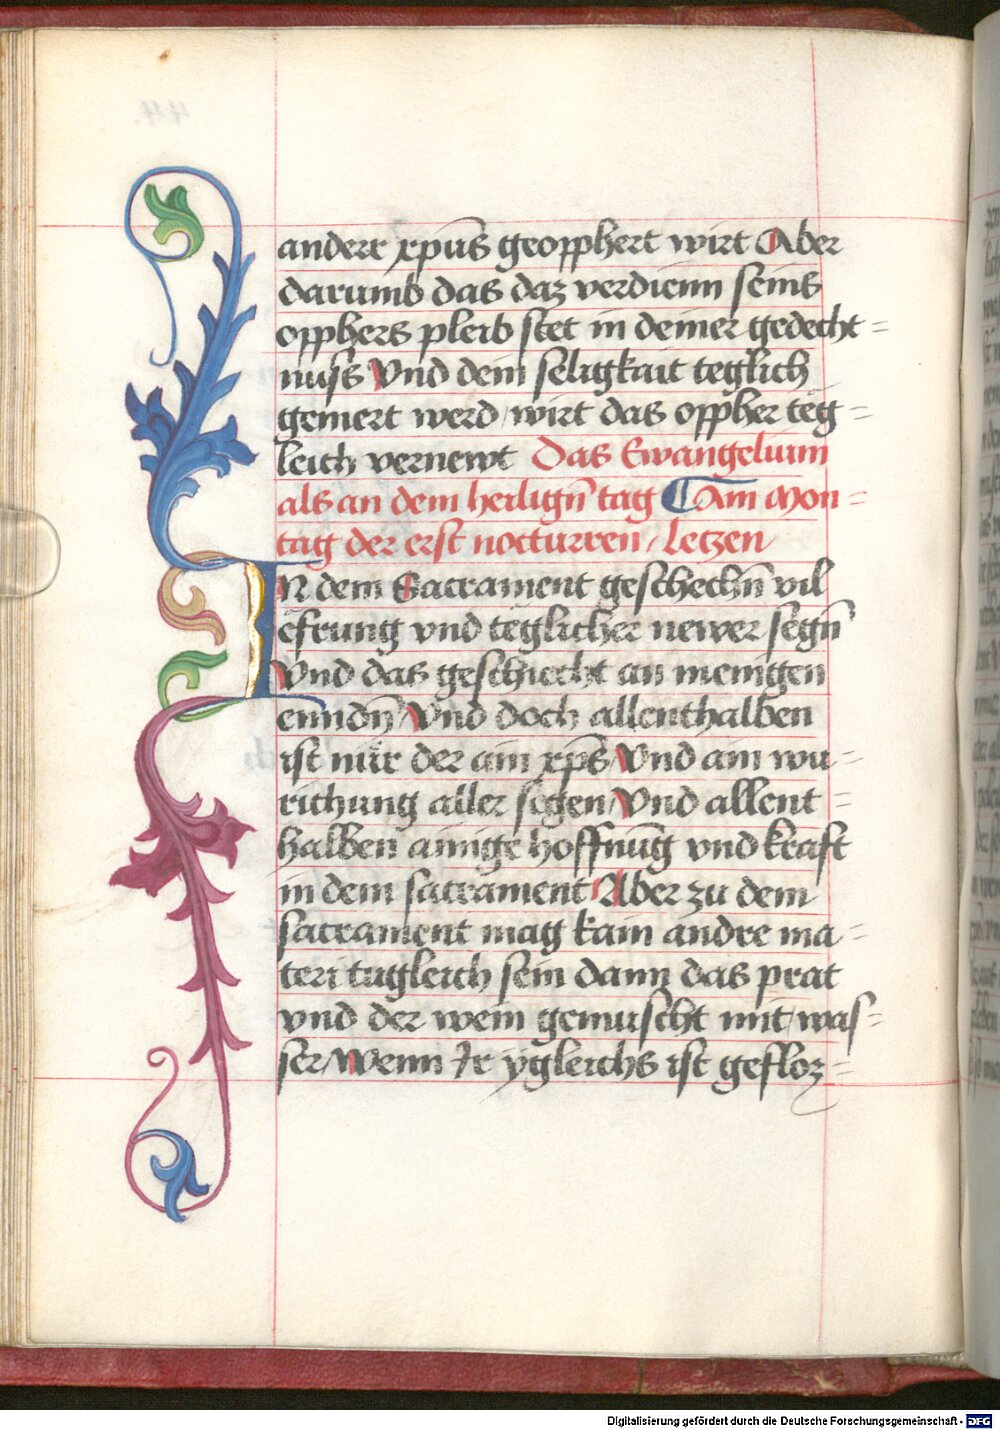 anderr xp̄us geopphert wirt Aber
darumb das daz verdienn seins
opphers pleib stet in deiner gedecht=
nuss Vnd dein seligkait teglich
gemert werd / wirt das oppher teg=
leich vernewt Das Ewangelium
als an dem heiligñ tag Am Mon=
tag der erst nocturren / letzen
IN dem Sacrament geschechñ vil
efrung vnd teglicher newer segñ
Vnd das geschiecht an menigen
enndñ / Vnd doch allenthalben
ist nur der ain xp̄s Vnd ain wu=
richung aller segen / Vnd allent=
halben ainige hoffnūg vnd kraft
in dem sacrament Aber zu dem
sacrament mag kain andre ma=
teri tugleich sein dann das prat
vnd der wein gemuscht mit was=
ser / Wenn Ir ygleichs ist gefloz=
Digitalisierung gefördert durch die Deutsche Forschungsgemeinschaft - DFG